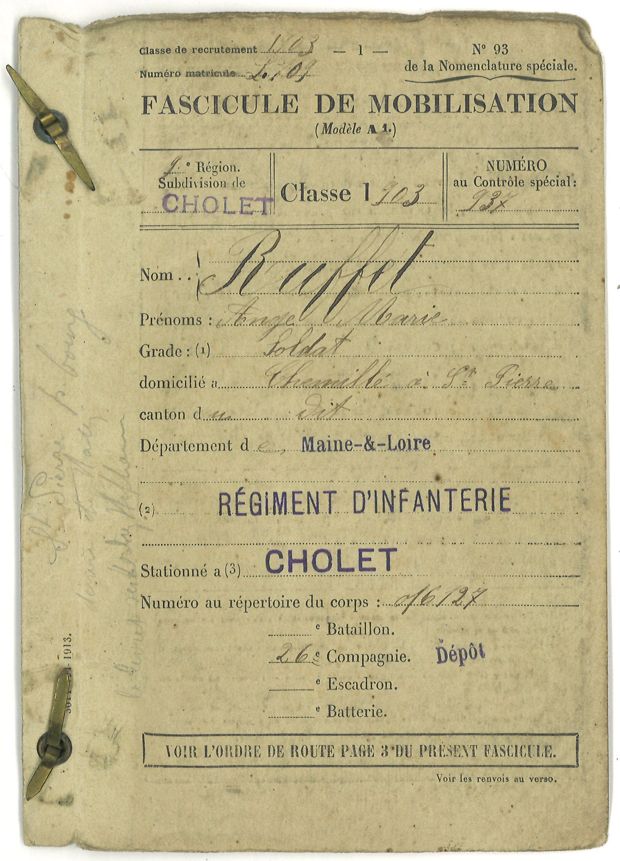 Classe de recrutement 1903 — 1 — N° 93
Numéro matricule de la Nomenclature spéciale.
FASCICULE DE MOBILISATION
(Modèle A 1.)
9e Région.
Subdivision de
CHOLET
Classe 1903
NUMÉRO
au Contrôle spécial:
Nom .. Ruffet
Prénoms : Ange Marie
Grade : (1) Soldat
domicilié à Chemillé à St Pierre
canton du dit
Département de Maine-&-Loire
(2) RÉGIMENT D'INFANTERIE
Stationné à (3) CHOLET
Numéro au répertoire du corps : 016127
e Bataillon.
26e Compagnie. Dépôt
e Escadron.
e Batterie.
VOIR L'ORDRE DE ROUTE PAGE 3 DU PRÉSENT FASCICULE.
Voir les renvois au verso.
1913.